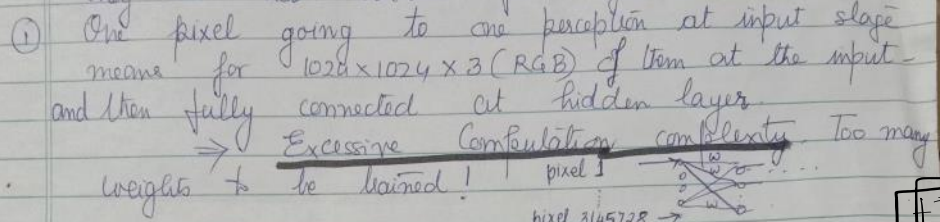 ① One pixel going to one perception at input stage
means for 1024 x 1024 x 3 (RGB) of them at the input -
and then fully connected at hidden layer.
⇒ Excessive Computation complexity. Too many
weights to be trained! pixel 1 w .....
pixel 3145728 → w